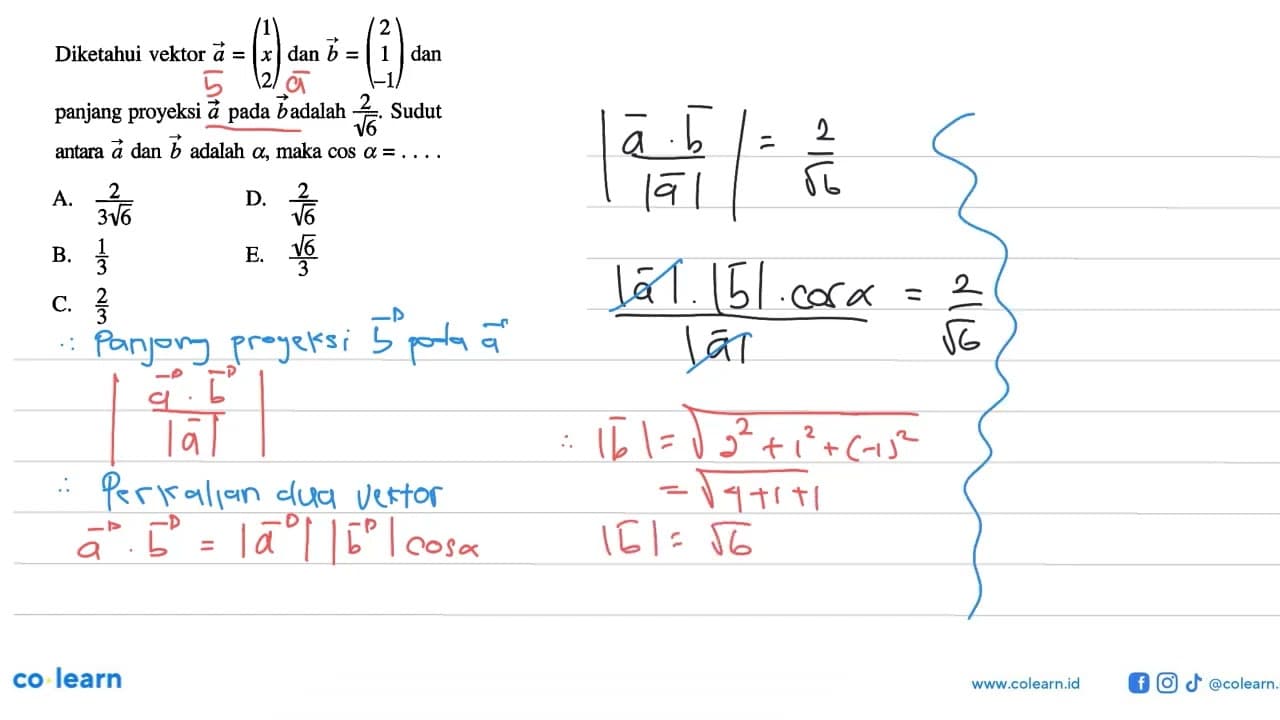 Diketahui vektor a⃗ = (1 x 2) dan b⃗ = (2 1 –1) dan
b̅ a̅
panjang proyeksi a⃗ pada b⃗ adalah 2/√6. Sudut
antara a⃗ dan b⃗ adalah α, maka cos α = . . . .
A. 2/3√6 D. 2/√6
B. 1/3 E. √6/3
C. 2/3
∴ Panjang proyeksi b⃗ pada a⃗
| a⃗ . b⃗ / |a̅| |
∴ Perkalian dua vektor
a⃗ . b⃗ = |a⃗| |b⃗| cos α
| a̅ . b̅ / |a̅| | = 2/√6
|a̅| . |b̅| . cos α / |a̅| = 2/√6
∴ |b̅| = √2² + 1² + (-1)²
= √4+1+1
|b̅| = √6
co learn
www.colearn.id @colearn.